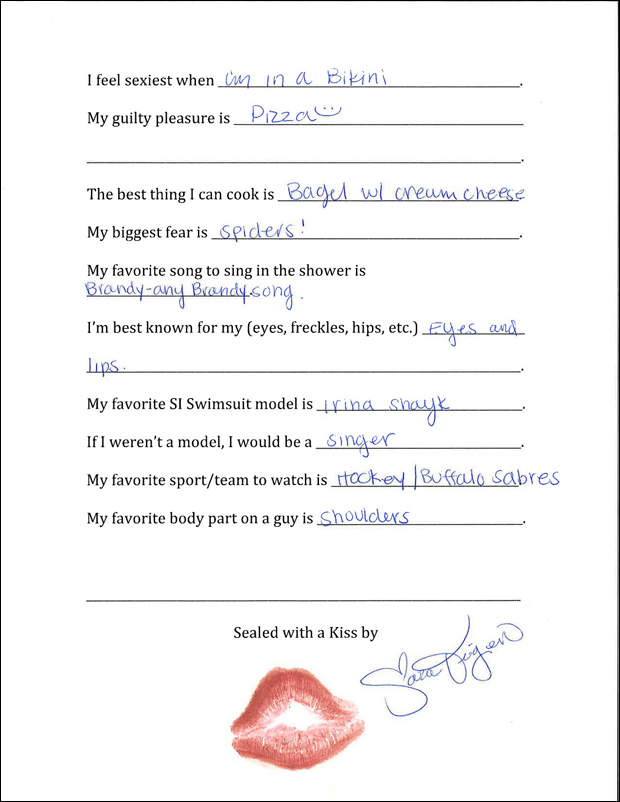 I feel sexiest when i'm in a Bikini.
My guilty pleasure is Pizza
The best thing I can cook is Bagel w/ cream cheese
My biggest fear is spiders!.
My favorite song to sing in the shower is
Brandy-any Brandy song.
I'm best known for my (eyes, freckles, hips, etc.) Eyes and
lips.
My favorite SI Swimsuit model is irina shayk.
If I weren't a model, I would be a singer.
My favorite sport/team to watch is Hockey/Buffalo Sabres
My favorite body part on a guy is shoulders.
Sealed with a Kiss by
Sara